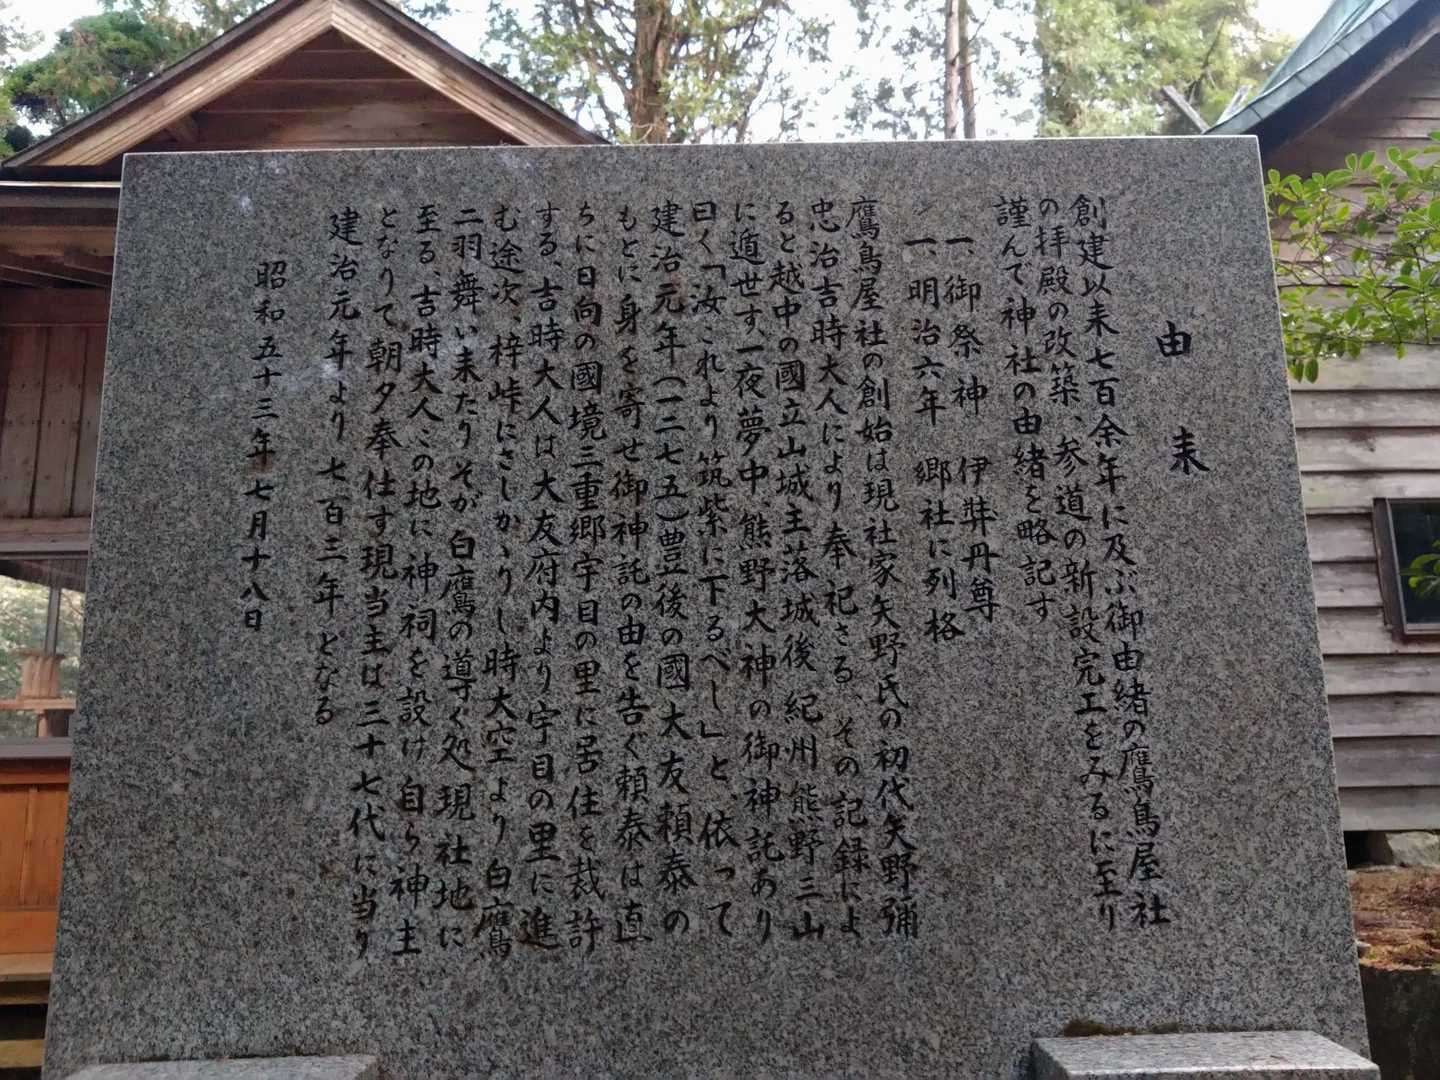 由来
創建以来七百余年に及ぶ御由緒の鷹鳥屋社
の拝殿の改築、参道の新設完工をみるに至り
謹んで神社の由緒を略記す
一、御祭神 伊弉丹尊
一、明治六年 郷社に列格
鷹鳥屋社の創始は現社家矢野氏の初代矢野彌
忠治吉時大人により奉祀さる、その記録によ
ると越中の國立山城主落城後紀州熊野三山
に遁世す、一夜夢中、熊野大神の御神託あり
曰く「汝これより筑紫に下るべし」と、依って
建治元年(一二七五)豊後の國大友頼泰の
もとに身を寄せ御神託の由を告ぐ頼泰は直
ちに日向の國境三重郷宇目の里に居住を裁許
する、吉時大人は大友府内より宇目の里に進
む途次、梓峠にさしかゝりし時大空より白鷹
二羽舞い来たりそが白鷹の導く処現社地に
至る、吉時大人この地に神祠を設け自ら神主
となりて朝夕奉仕す現当主は三十七代に当り
建治元年より七百三年となる
昭和五十三年七月十八日